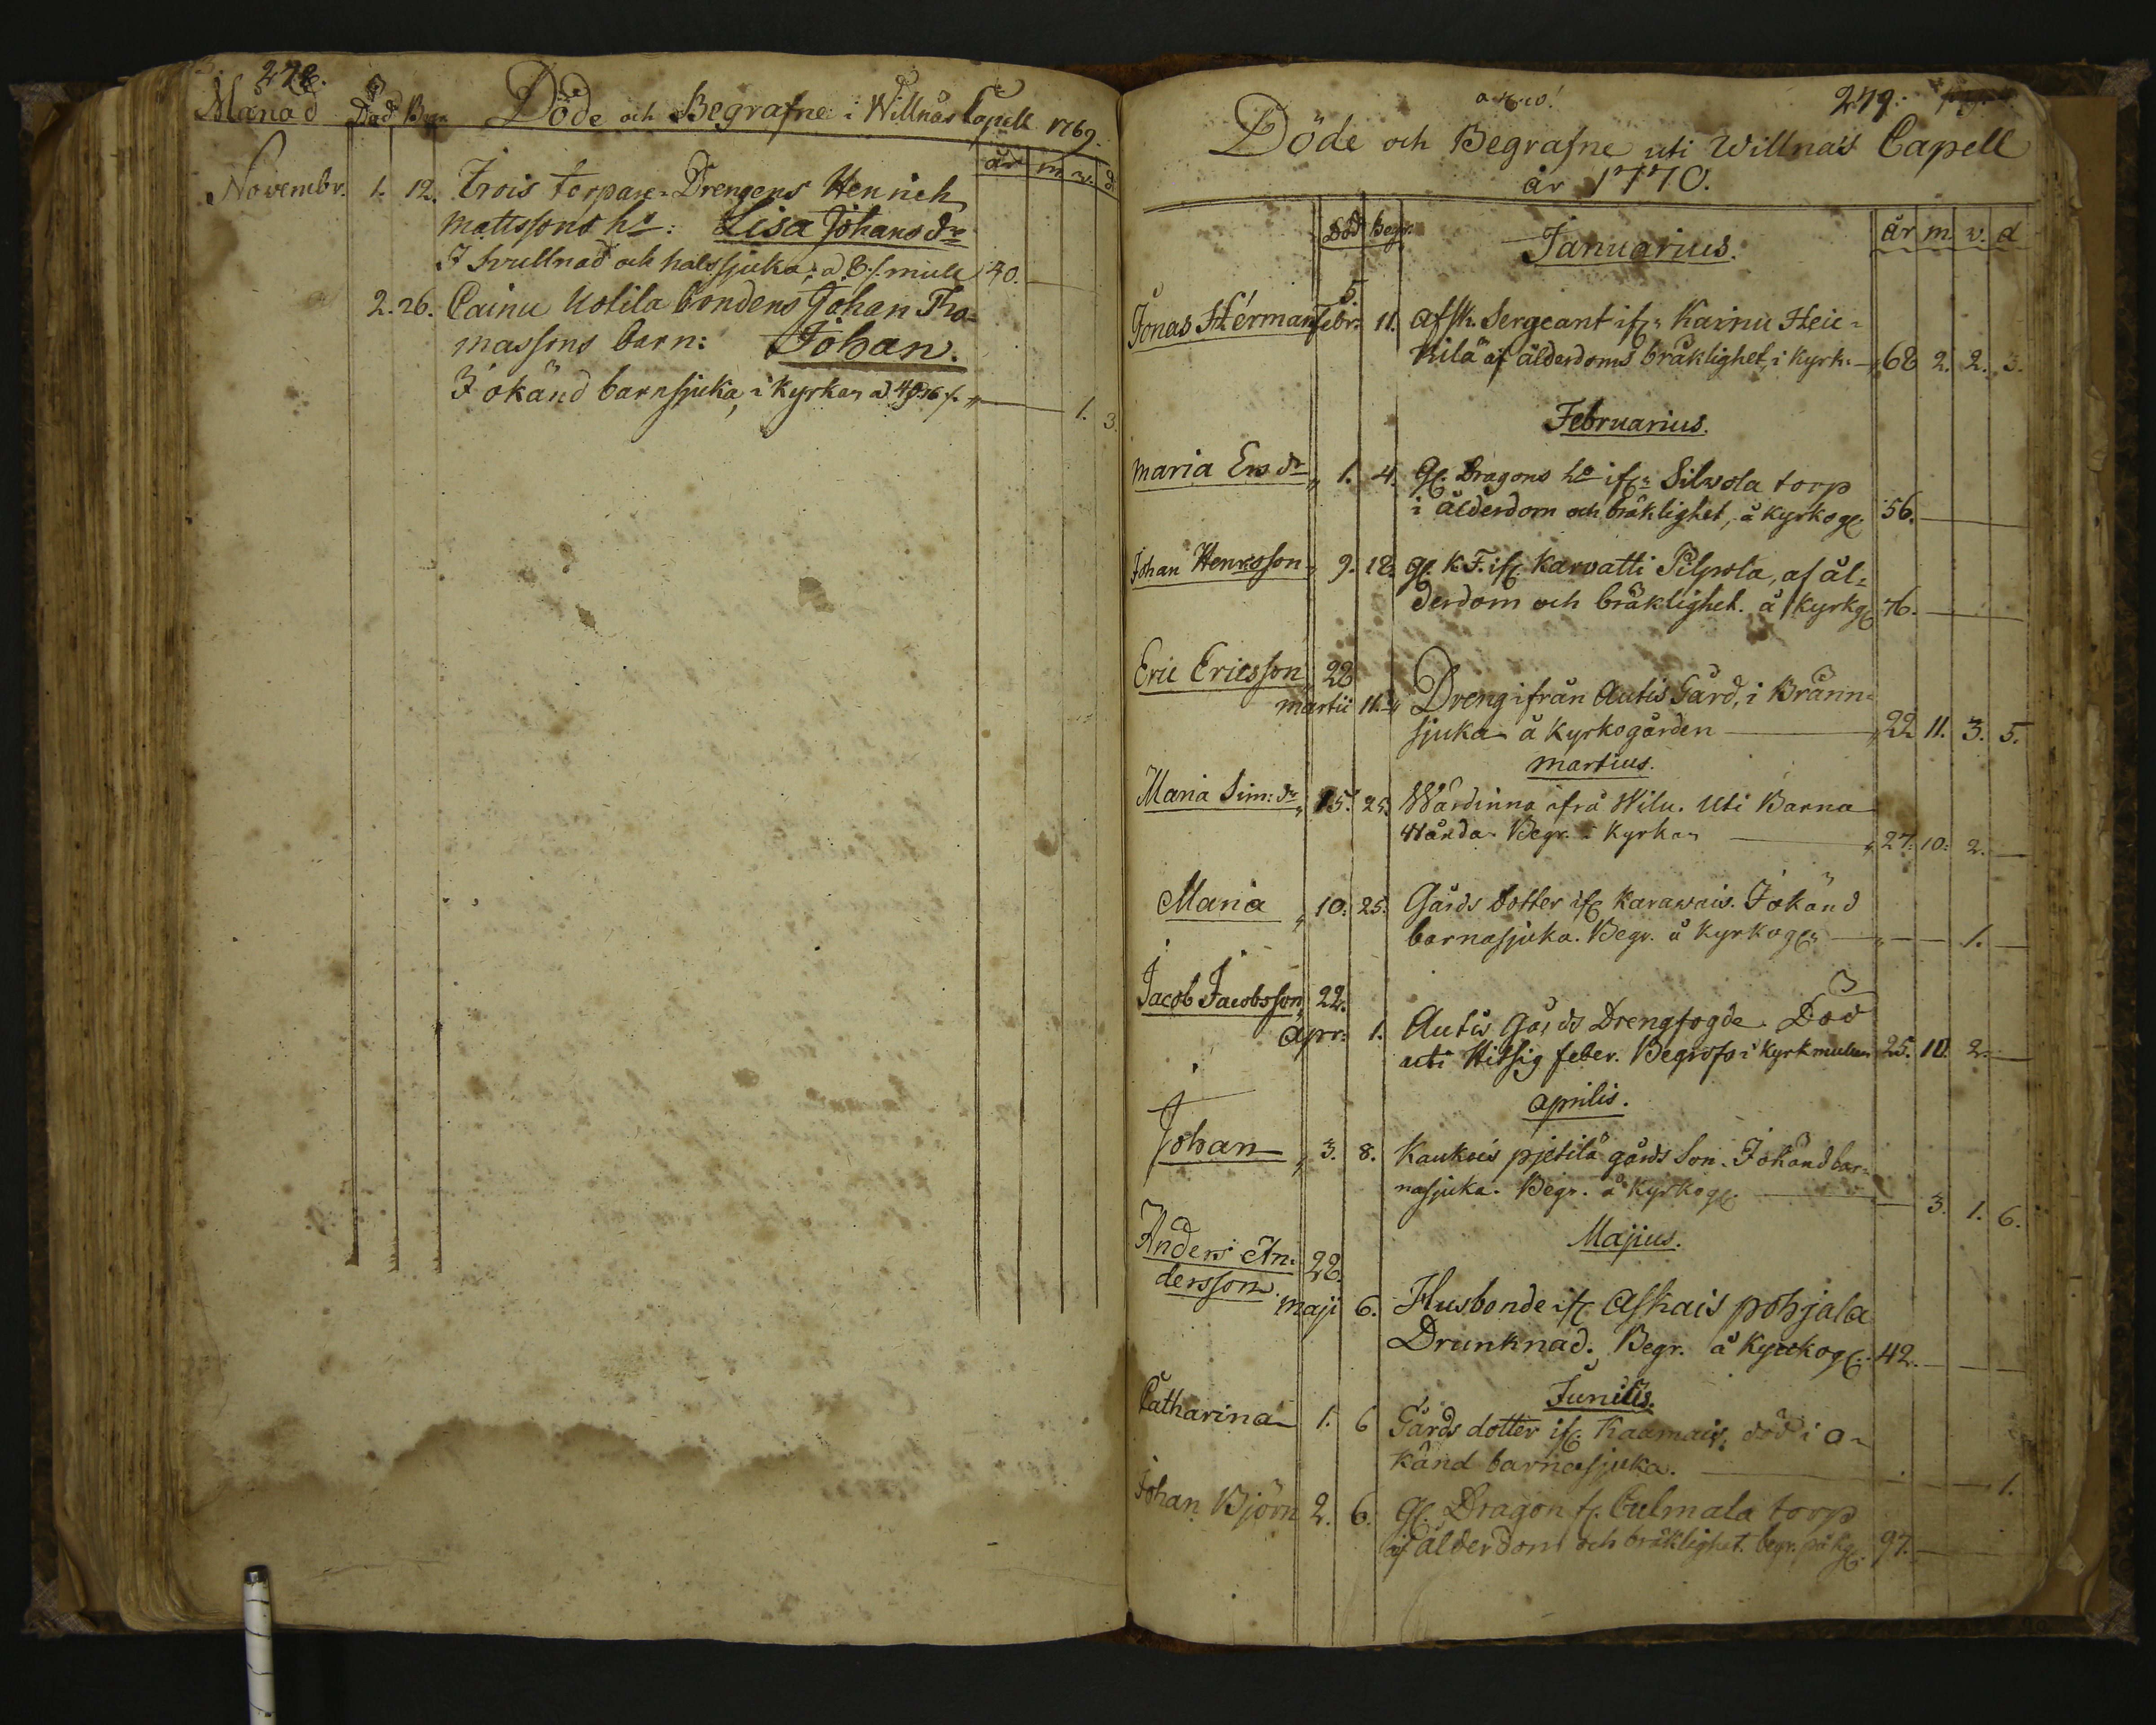 278.
Månad Död Begr. Döde och Begrafne i Willnäs Capell 1769.
år m. v. d
Novembr. 1. 12. Trois torpare-Drengens Henrich
Mattssons h:o: Lisa Johansdr
I svullnad och halssjuka, a 3 f. mull 40.
2. 26. Cainu Uotila bondens Johan Tho-
massons barn: Johan.
I okänd barnsjuka, i kyrkan 1. 3.
279.
Döde och Begrafne uti Willnäs Capell
år 1770.
Död Begr. Januarius. år m. v. d
5.
Jonas Hérman febr. 11. afsk. Sergeant ifr. Kainu Hei-
kilä af ålderdoms bräklighet, i kyrk. 68 2. 2. 3.
Februarius.
Maria Ersdr 1. 4. gl. Dragons h:o ifr. Silvola torp
i ålderdom och bräklighet, å kyrkog. 56.
Johan Henricsson 9. 18. gl. K.F. ifr. Karvatti Pilpola, af ål-
derdom och bräklighet. å kyrkog. 76.
Eric Ericsson 22
martii 11. Dreng ifrån Autis Gård, i Bränn-
sjuka å kyrkogården 22 11. 3. 5.
Martius.
Maria Sim:dr 15. 25. Wärdinna ifrå Wilu. Uti Barna
Wånda. Begr. i Kyrkan 27. 10. 2.
Maria 10. 25. Gårds dotter ifr. Karawais. I okänd
barnasjuka. Begr. å kyrkog. 1.
Jacob Jacobsson 22.
Apr. 1. Autis Gårds Drengfogde. Död
uti Hitsig feber. Begrofs i kyrkmullen 25. 10. 2.
Aprilis.
Johan 3. 8. Kaukois pjetilä gårds Son. I okänd bar-
nasjuka. Begr. å kyrkog. 3. 1. 6.
Majius.
Anders An- 22.
dersson.
Maji 6. Husbonde ifr. Askais pohjala
Drunknad. Begr. å Kyrkog. 42.
Junius.
Catharina 1. 6 Gårds dotter ifr. Kaamais, död i o-
känd barnasjuka. 1.
Johan Björn 2. 6. gl. Dragon fr. Culmala torp
af ålderdom och bräklighet. begr. på kg. 97.